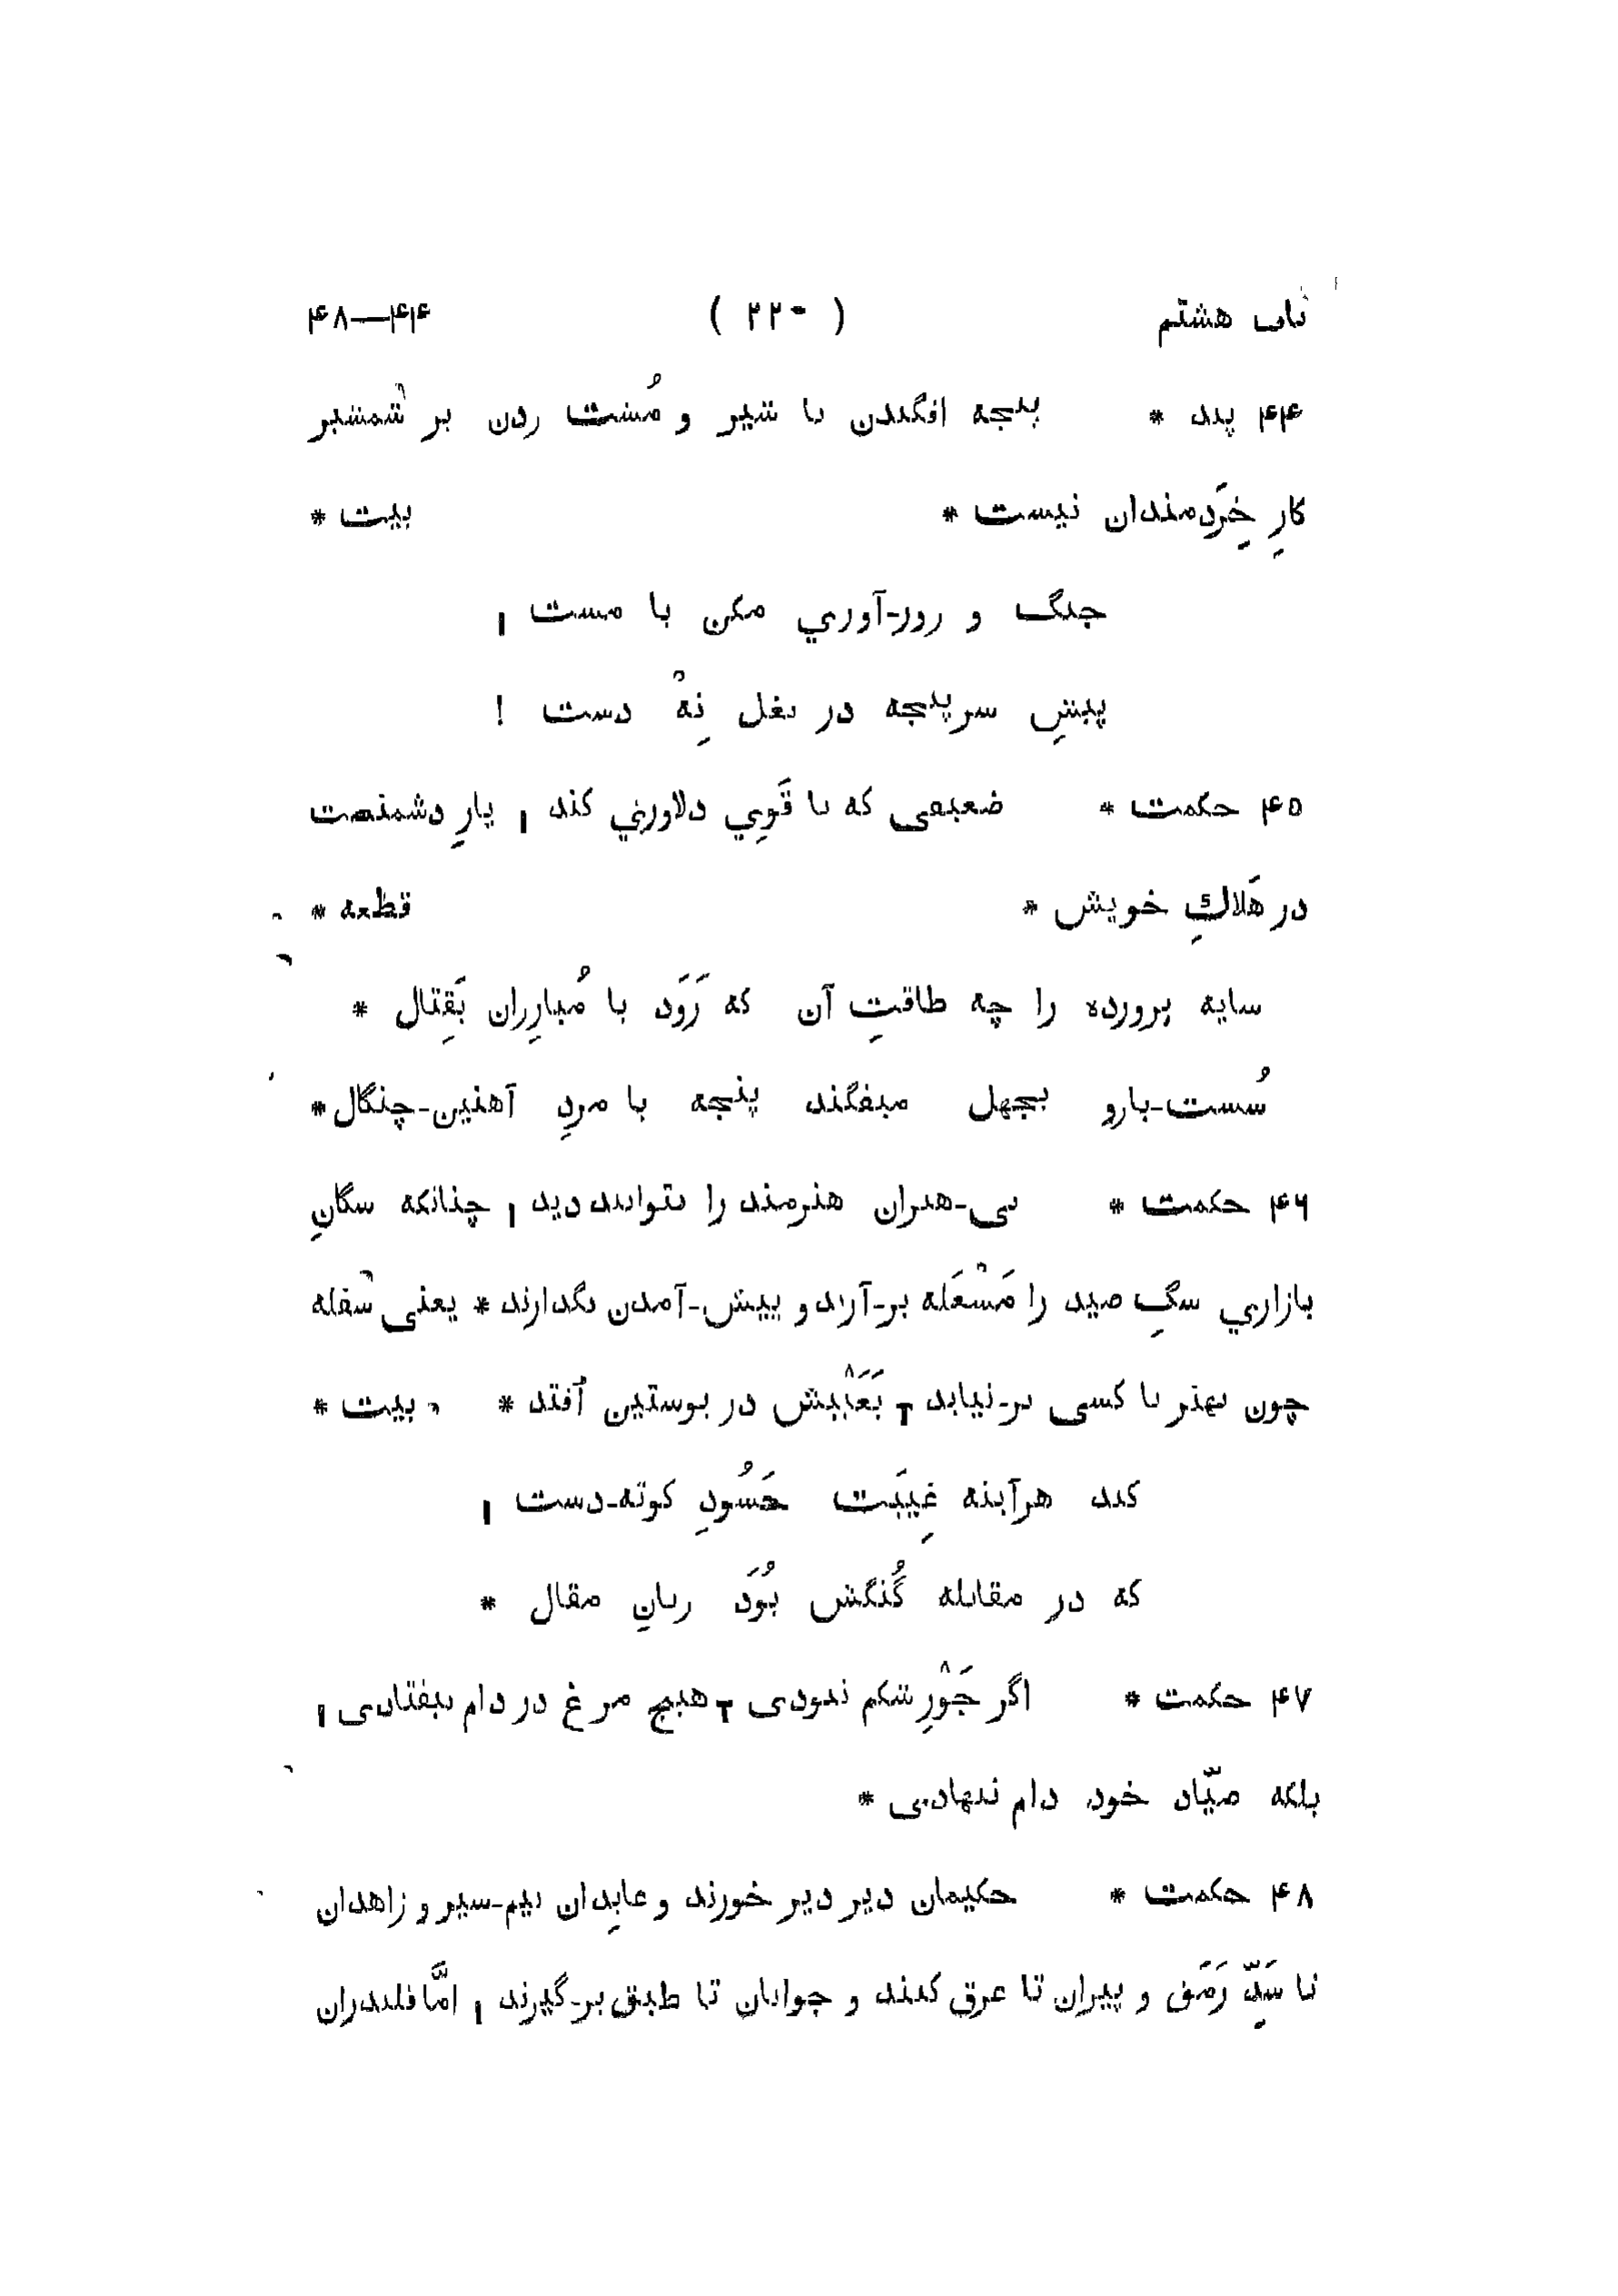 باب هشتم ( ۲۲۰ ) ۴۴—۴۸
۴۴ پند * پنجه افگندن با شیر و مُشت زدن بر شمشیر
کارِ خِرَدمندان نیست * بیت *
جنگ و زور-آوري مکن با مست ،
پیشِ سرپنجه در بغل نِهْ دست !
۴۵ حکمت * ضعیفی که با قَوِي دلاوري کند ، یارِ دشمنست
در هَلاكِ خویش * قطعه *
سایه پرورده را چه طاقتِ آن که رَوَد با مُبارِزان بَقِتال *
سُست-بازو بجهل میفگند پنجه با مردِ آهنین-چنگال *
۴۶ حکمت * بی-هنران هنرمند را نتوانند دید ، چنانکه سگانِ
بازاري سگِ صید را مَشْعَله بر-آرند و پیش-آمدن نگذارند * یعنی سفله
چون بهنر با کسی بر-نیابد بَعَیْبش در پوستین اُفتد * بیت *
کند هرآینه غِیبَت حَسُودِ کوته-دست ،
که در مقابله گُنگش بُوَد زبانِ مقال *
۴۷ حکمت * اگر جَوْرِ شکم نبودی هیچ مرغ در دام نیفتادی ،
بلکه صیّاد خود دام ننهادی *
۴۸ حکمت * حکیمان دیر دیر خورند و عابِدان نیم-سیر و زاهدان
تا سَدِّ رَمَق و پیران تا عرق کنند و جوانان تا طبق بر-گیرند ، امّا قلندران